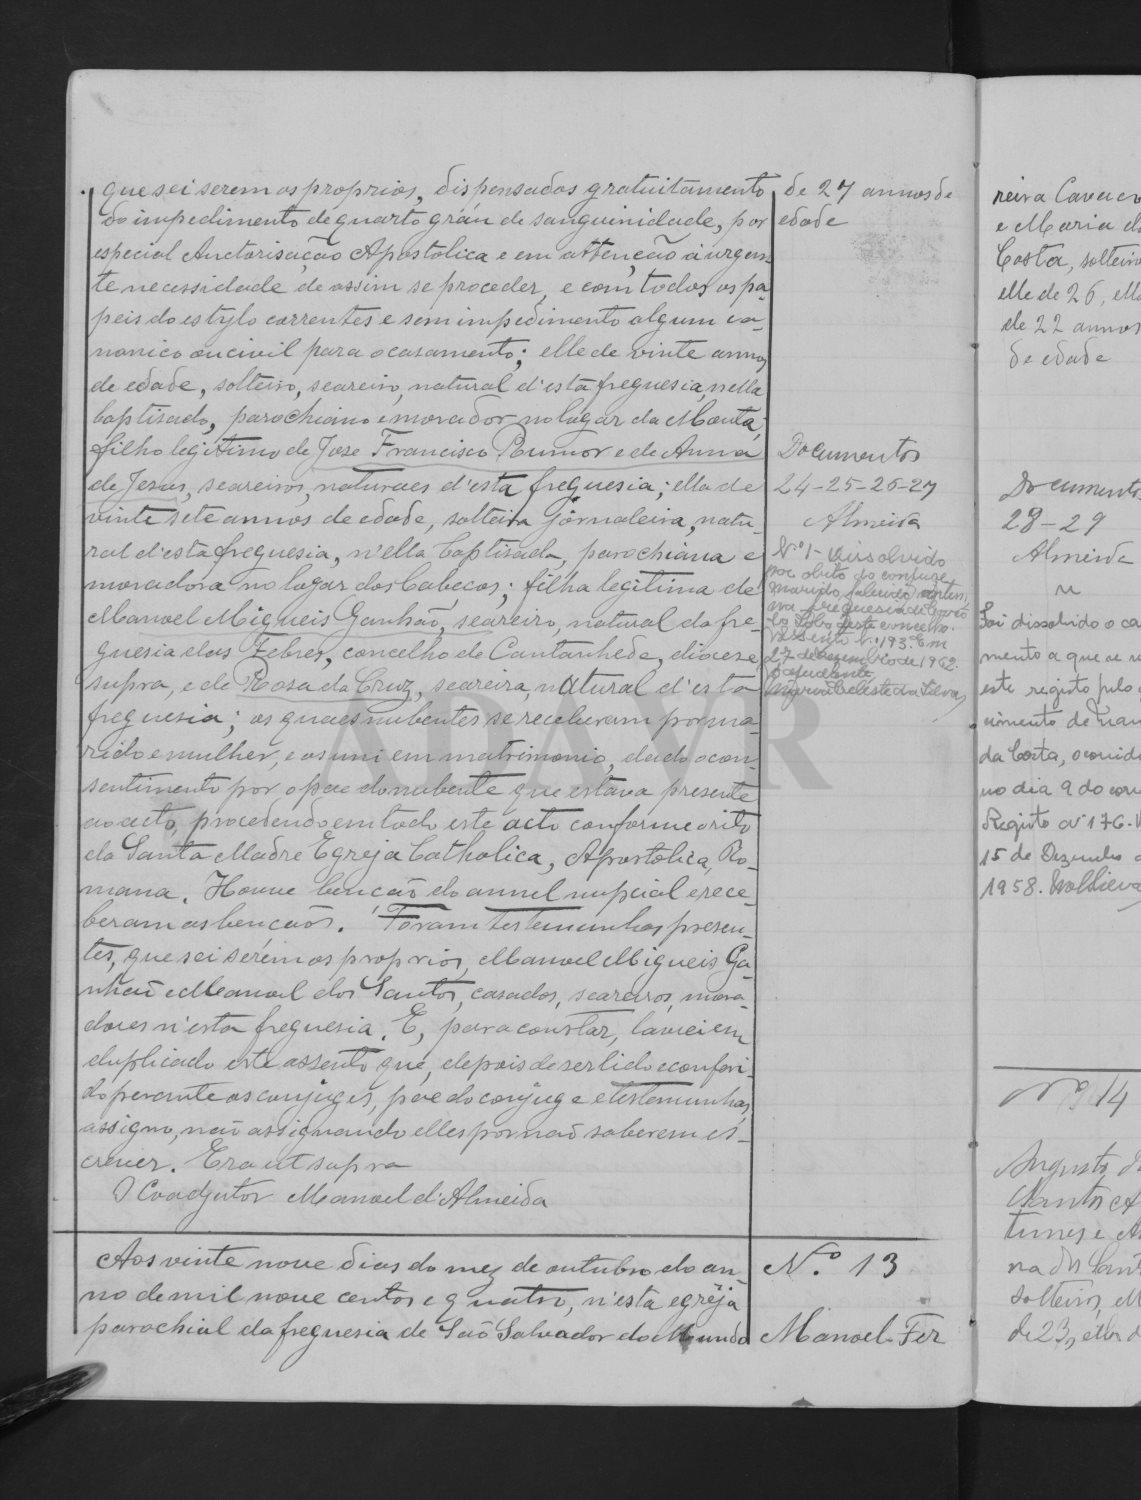 que sei serem os proprios, dispensados gratuitamente
do impedimento de quarto gráu de sanguinidade, por
especial Auctorisação Apostolica e em attenção á urgen-
te necessidade de assim se proceder, e com todos os pa-
peis do estylo correntes e sem impedimento algum ca-
nonico ou civil para o casamento; elle de vinte annos
de edade, solteiro, seareiro, natural d'esta freguesia, nella
baptisado, parochiano e morador no logar da Mouta,
filho legitimo de José Francisco Rumor e de Anna
de Jesus, seareiros, naturaes d'esta freguesia; ella de
vinte sete annos de edade, solteira jornaleira, natu-
ral d'esta freguesia, n'ella baptisada, parochiana e
moradora no logar dos Cabeços; filha legitima de
Manoel Migueis Ganhão, seareiro, natural da fre-
guesia das Febres, concelho de Cantanhede, diocese
supra, e de Rosa da Cruz, seareira, natural d'esta
freguesia; os quaes nubentes se receberam por ma-
rido e mulher, e os uni em matrimonio, dado o con-
sentimento por o pae do nubente que estava presente
ao acto, procedendo em todo este acto conforme o rito
da Santa Madre Egreja Catholica, Apostolica, Ro-
mana. Houve bencão do annel nupcial e rece-
beram as bencãos. Foram testemunhas presen-
tes, que sei serem os proprios, Manoel Migueis Ga-
nhão e Manoel dos Santos, casados, seareiros, mora-
dores n'esta freguesia. E, para constar, lavrei em
duplicado este assento que, depois de ser lido e conferi-
do perante os conjuges, pae do conjuge e testemunhas,
assigno, não assignando elles por não saberem es-
crever. Era ut supra
O Coadjutor Manoel d'Almeida
Aos vinte nove dias do mez de outubro do an-
no de mil nove centos e quatro, n'esta egreja
parochial da freguesia de São Salvador do Mundo
de 27 annos de
edade
Documentos
24-25-26-27
Almeida
Nº 1 - Dissolvido
por obito do conjuge
marido, falecido
na freguesia de
deste concelho.
Assento n.º 193. Em
27 de Dezembro de 1962.
O ajudante,
da Silva
N.º 13
Manoel Fer
reira Cavaco
e Maria da
Costa, solteiros
elle de 26, ella
de 22 annos
de edade
Documentos
28-29
Almeida
Foi dissolvido o ca
mento a que se re
este registo pelo
cimento de
da Costa, ocorrido
no dia 9 do corr
Registo nº 176.
15 de Dezembro
1958.
Nº 14
Augusto d
Santos
tunes e
na dos Sant
solteiros,
de 23, ella d
ADAVR